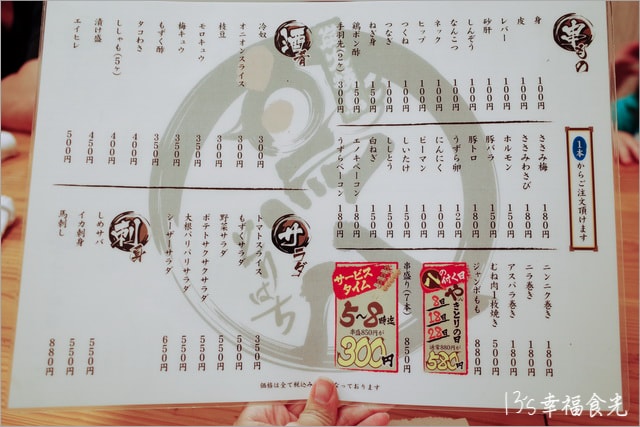 串もの
1本からご注文頂けます
身 100円
皮 100円
レバー 100円
砂肝 100円
しんぞう 100円
なんこつ 100円
ネック 100円
ヒップ 100円
つくね 100円
つなぎ 100円
ねぎ身 150円
鶏ポン酢 150円
手羽先(2ヶ) 300円
ささみ梅 180円
ささみわさび 180円
ホルモン 150円
豚バラ 150円
豚トロ 180円
うずら卵 120円
にんにく 100円
ピーマン 100円
しいたけ 150円
ししとう 150円
白ねぎ 150円
エノキベーコン 180円
うずらベーコン 180円
ニンニク巻き 180円
ニラ巻き 180円
アスパラ巻き 180円
むね肉1枚焼き 500円
ジャンボもも 880円
8の付く日
8日
18日
28日
やきとりの日
通常880円が
580円
串盛り(7本) 850円
サービスタイム
5〜8時迄
串盛850円が
300円
酒肴
冷奴 300円
オニオンスライス 300円
枝豆 300円
モロキュウ 350円
梅キュウ 350円
もずく酢 350円
タコわさ 400円
ししゃも(5ヶ) 400円
漬け盛 450円
エイヒレ 500円
サラダ
トマトスライス 350円
もずくサラダ 500円
野菜サラダ 550円
ポテトサクサクサラダ 550円
大根パリパリサラダ 550円
シーザーサラダ 650円
刺身
しめサバ 550円
イカ刺身 550円
馬刺し 880円
価格は全て税込みとなっております
13's幸福食光